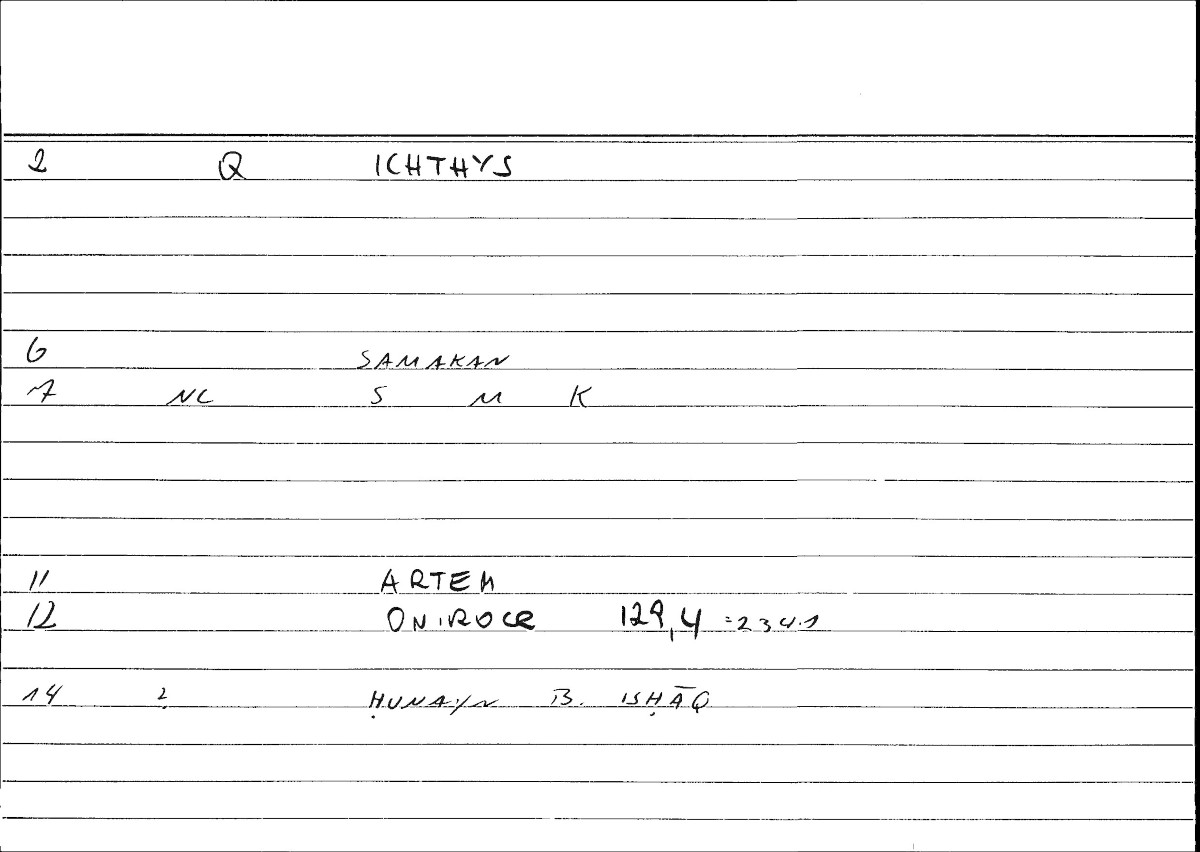 2 Q ICHTHYS
6 SAMAKAN
7 NC S M K
11 ARTEM
12 ONIROCR 129,4 =234.1
14 ? ḤUNAYN B. ISḤĀQ